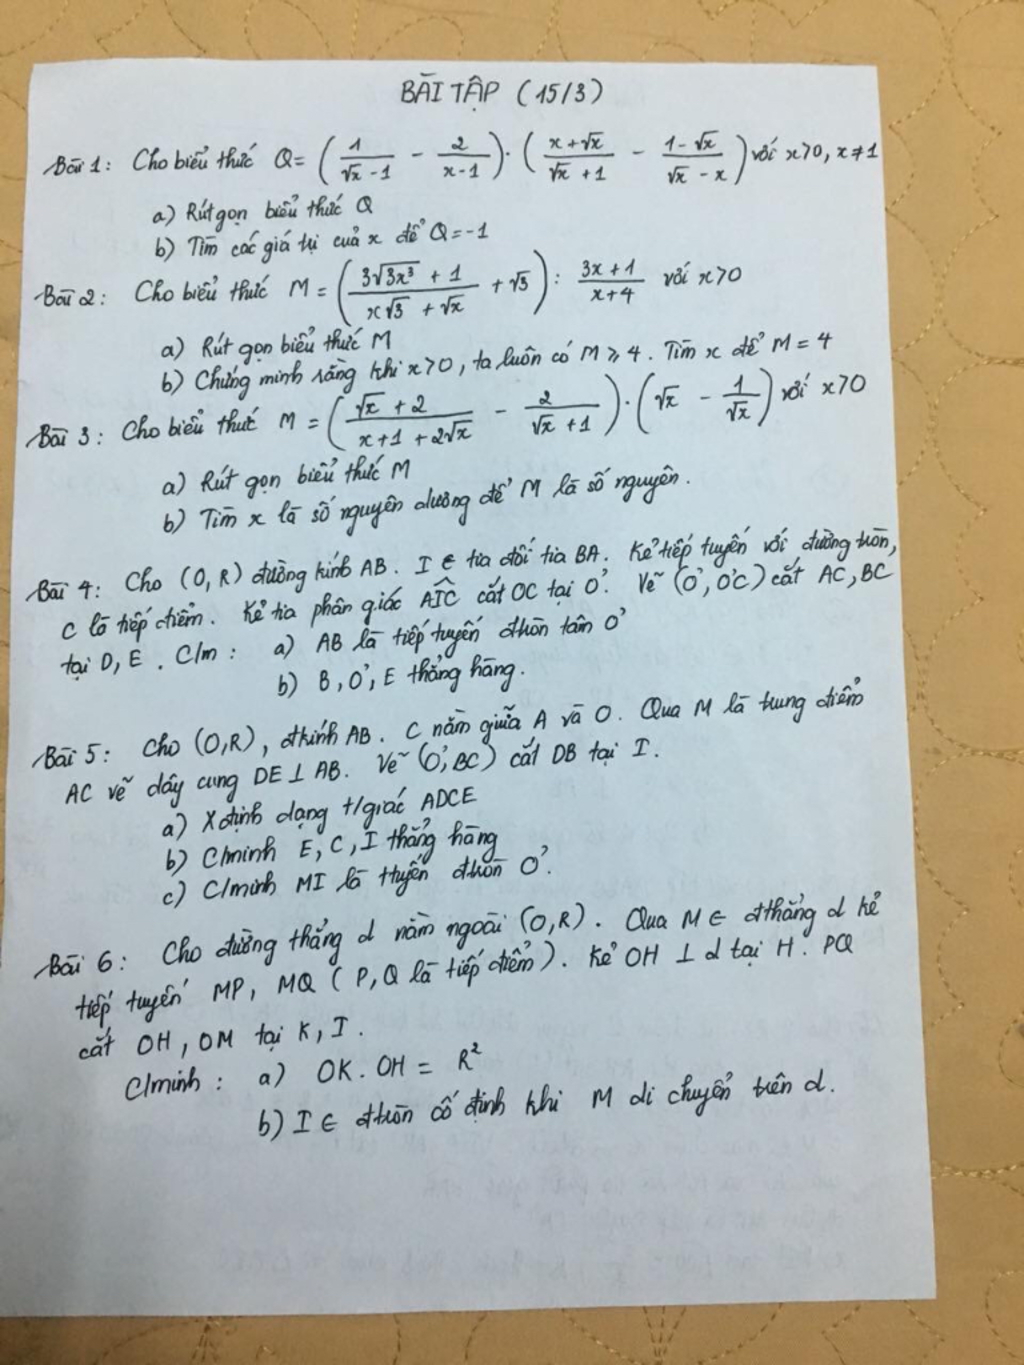 BÀI TẬP (15/3)
Bài 1: Cho biểu thức Q = (1/(√x - 1) - 2/(x - 1)) · ((x + √x)/(√x + 1) - (1 - √x)/(√x - x)) với x>0, x≠1
a) Rút gọn biểu thức Q
b) Tìm các giá trị của x để Q = -1
Bài 2: Cho biểu thức M = ((3√3x³ + 1)/(x√3 + √x) + √3) : (3x + 1)/(x + 4) với x>0
a) Rút gọn biểu thức M
b) Chứng minh rằng khi x>0, ta luôn có M ≥ 4. Tìm x để M = 4
Bài 3: Cho biểu thức M = ((√x + 2)/(x + 1 + 2√x) - 2/(√x + 1)) · (√x - 1/√x) với x>0
a) Rút gọn biểu thức M
b) Tìm x là số nguyên dương để M là số nguyên.
Bài 4: Cho (O, R) đường kính AB. I ∈ tia đối tia BA. Kẻ tiếp tuyến với đường tròn,
C là tiếp điểm. Kẻ tia phân giác AIC cắt OC tại O'. Vẽ (O', O'C) cắt AC, BC
tại D, E. C/m: a) AB là tiếp tuyến đtròn tâm O'
b) B, O', E thẳng hàng.
Bài 5: Cho (O,R), đkính AB. C nằm giữa A và O. Qua M là trung điểm
AC vẽ dây cung DE ⊥ AB. Vẽ (O', BC) cắt DB tại I.
a) Xđịnh dạng t/giác ADCE
b) C/minh E, C, I thẳng hàng
c) C/minh MI là ttuyến đtròn O'.
Bài 6: Cho đường thẳng d nằm ngoài (O,R). Qua M ∈ đthẳng d kẻ
tiếp tuyến MP, MQ (P,Q là tiếp điểm). Kẻ OH ⊥ d tại H. PQ
cắt OH, OM tại K, I.
C/minh: a) OK. OH = R²
b) I ∈ đtròn cố định khi M di chuyển trên d.